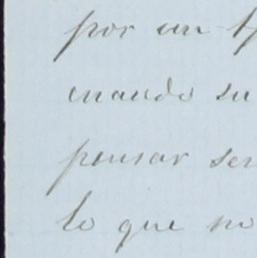 por un
mando su
pensar ser
lo que no